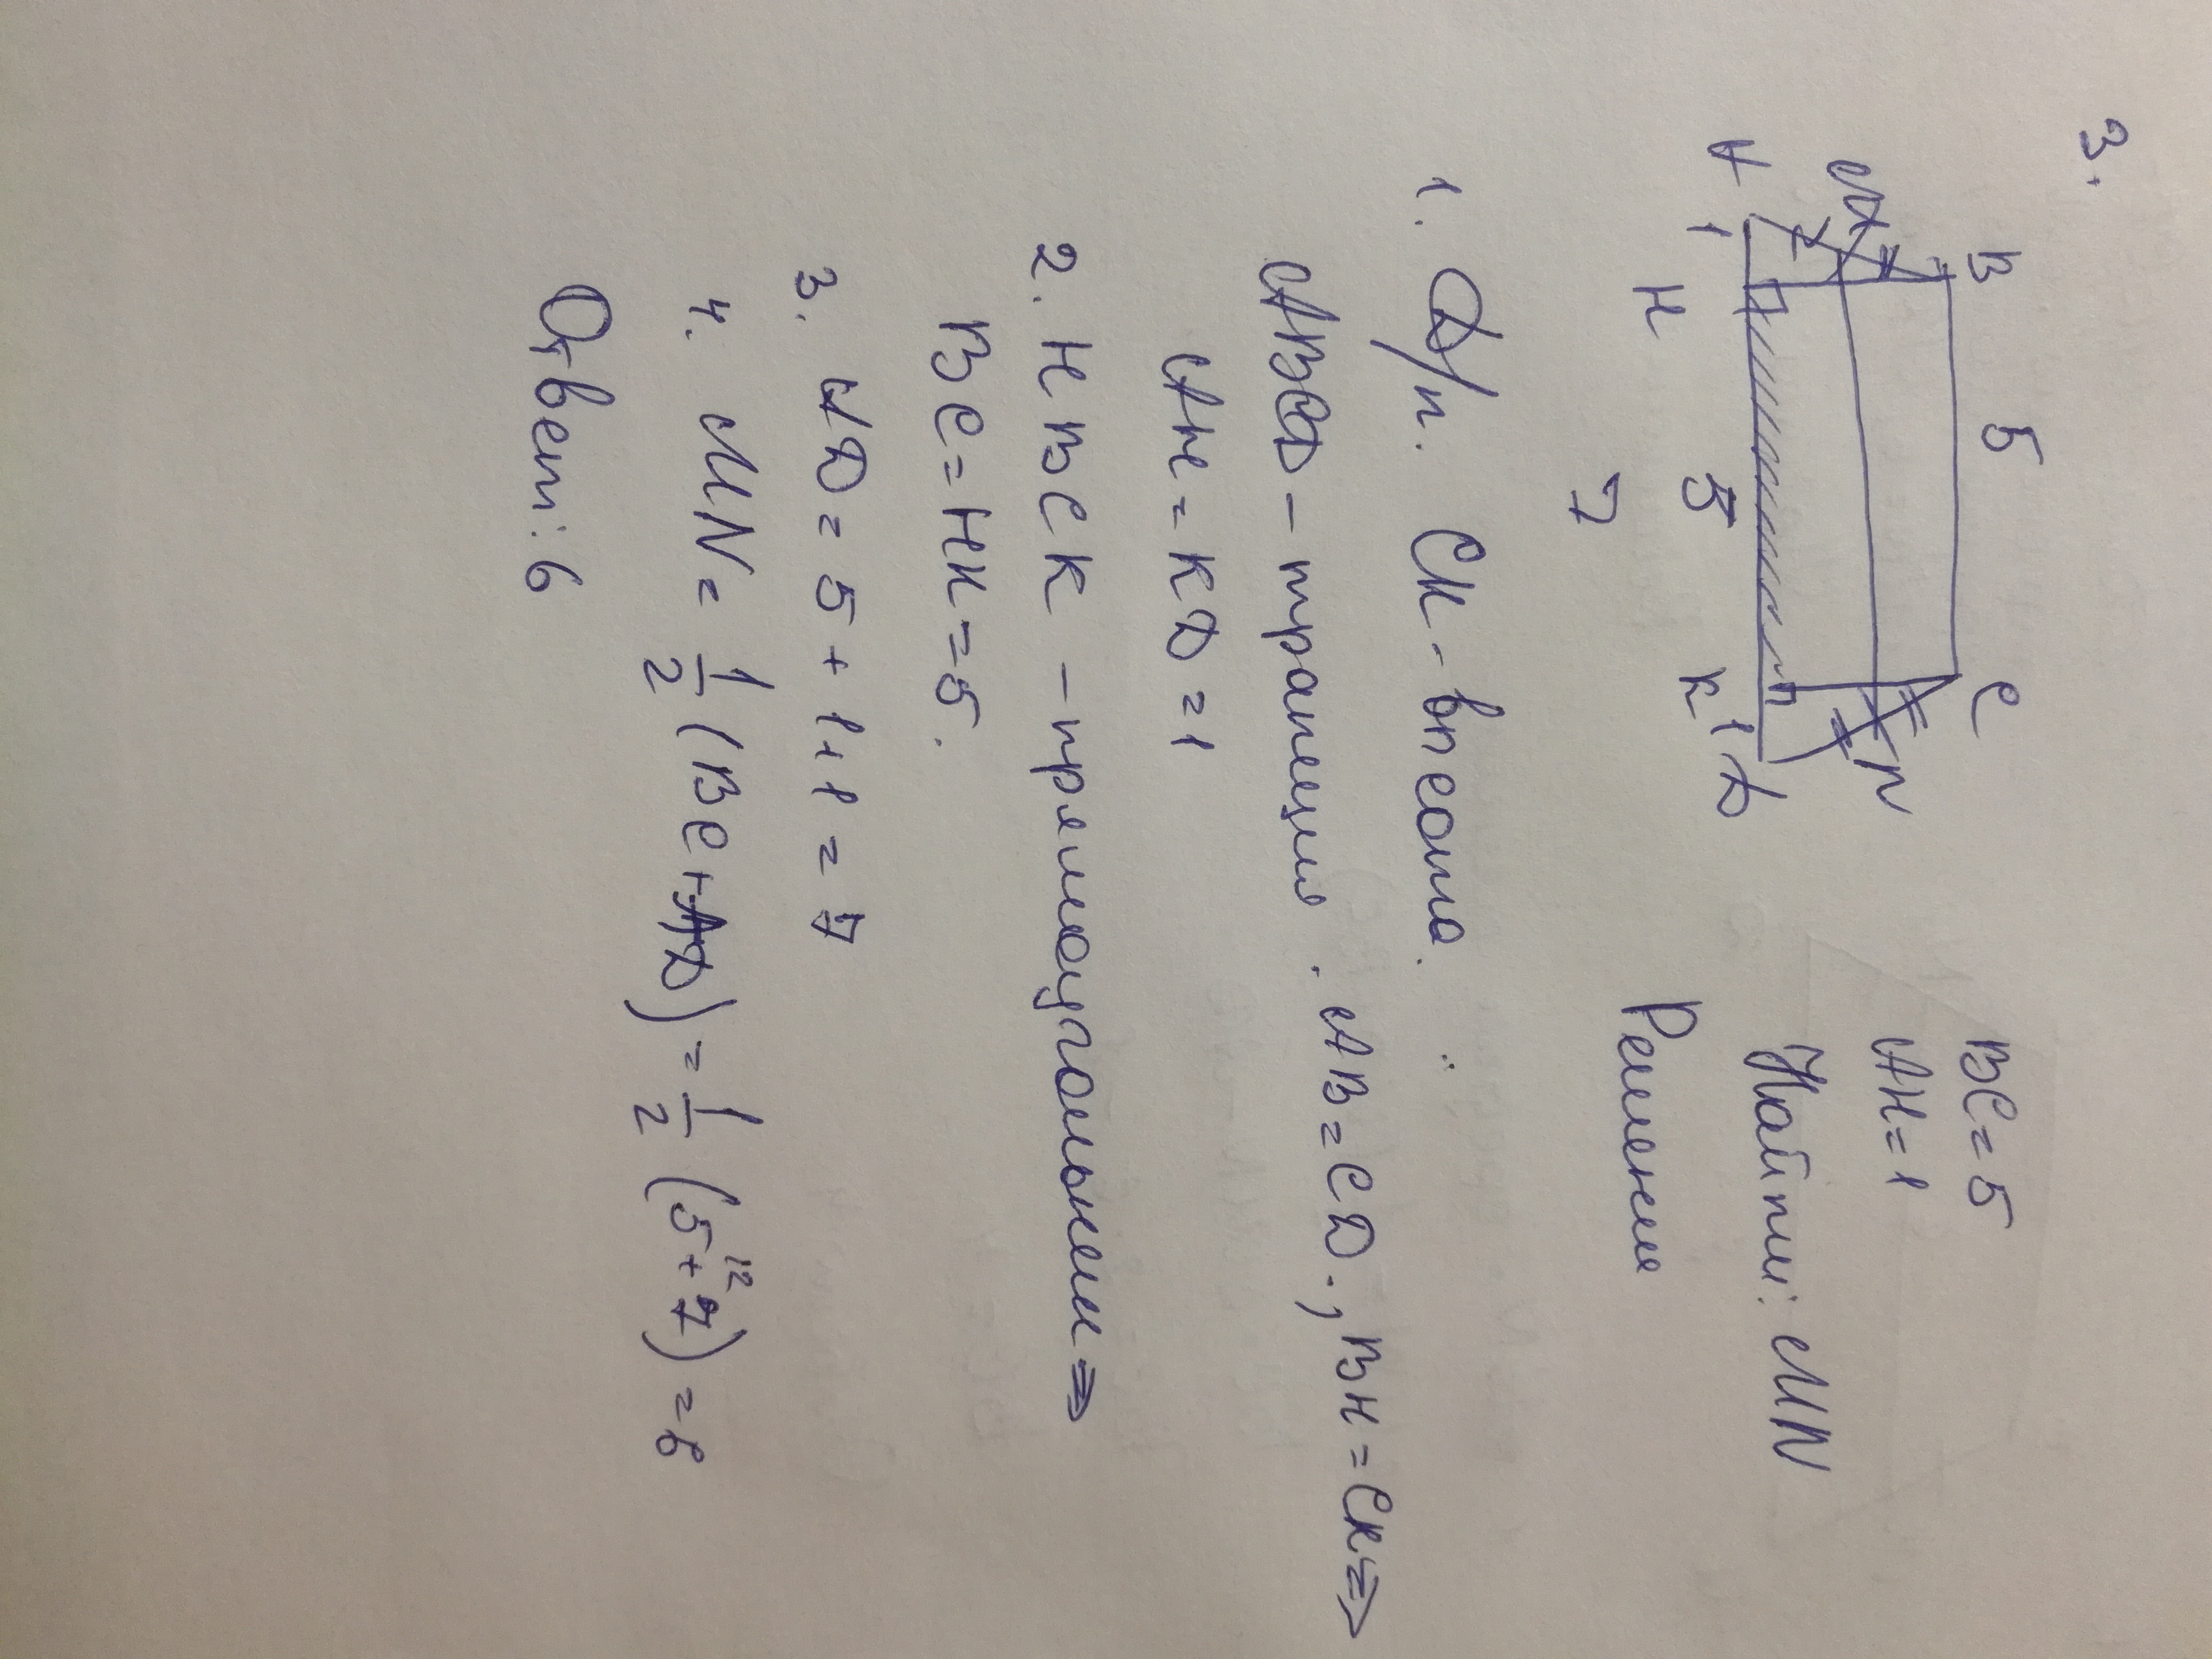 3.
B 5 C
M N
A 1 H 5 K 1 D
7
BC = 5
AH = 1
Найти: MN
Решение
1. Д/п. CK - высота.
ABCD - трапеция. AB = CD., BH = CK ⇒
AH = KD = 1
2. HBCK - прямоугольник ⇒
BC = HK = 5.
3. AD = 5 + 1 + 1 = 7
4. MN = 1/2 (BC + AD) = 1/2 (5 + 7) 12 = 6
Ответ: 6